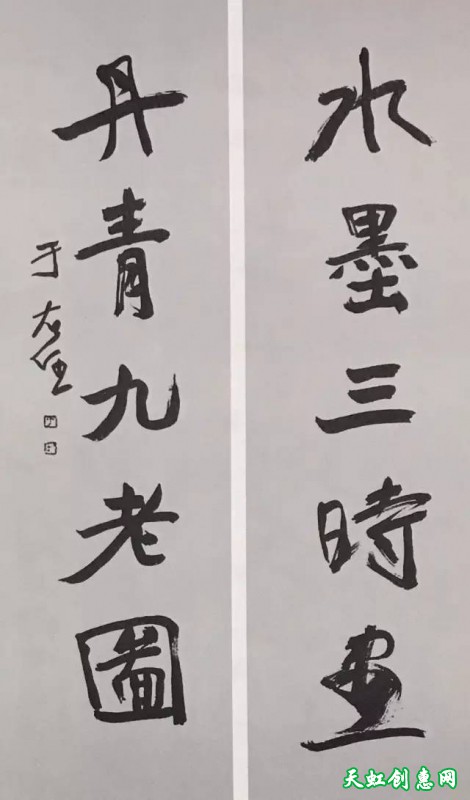 水墨三時畫
丹青九老圖
于右任
天虹创惠网